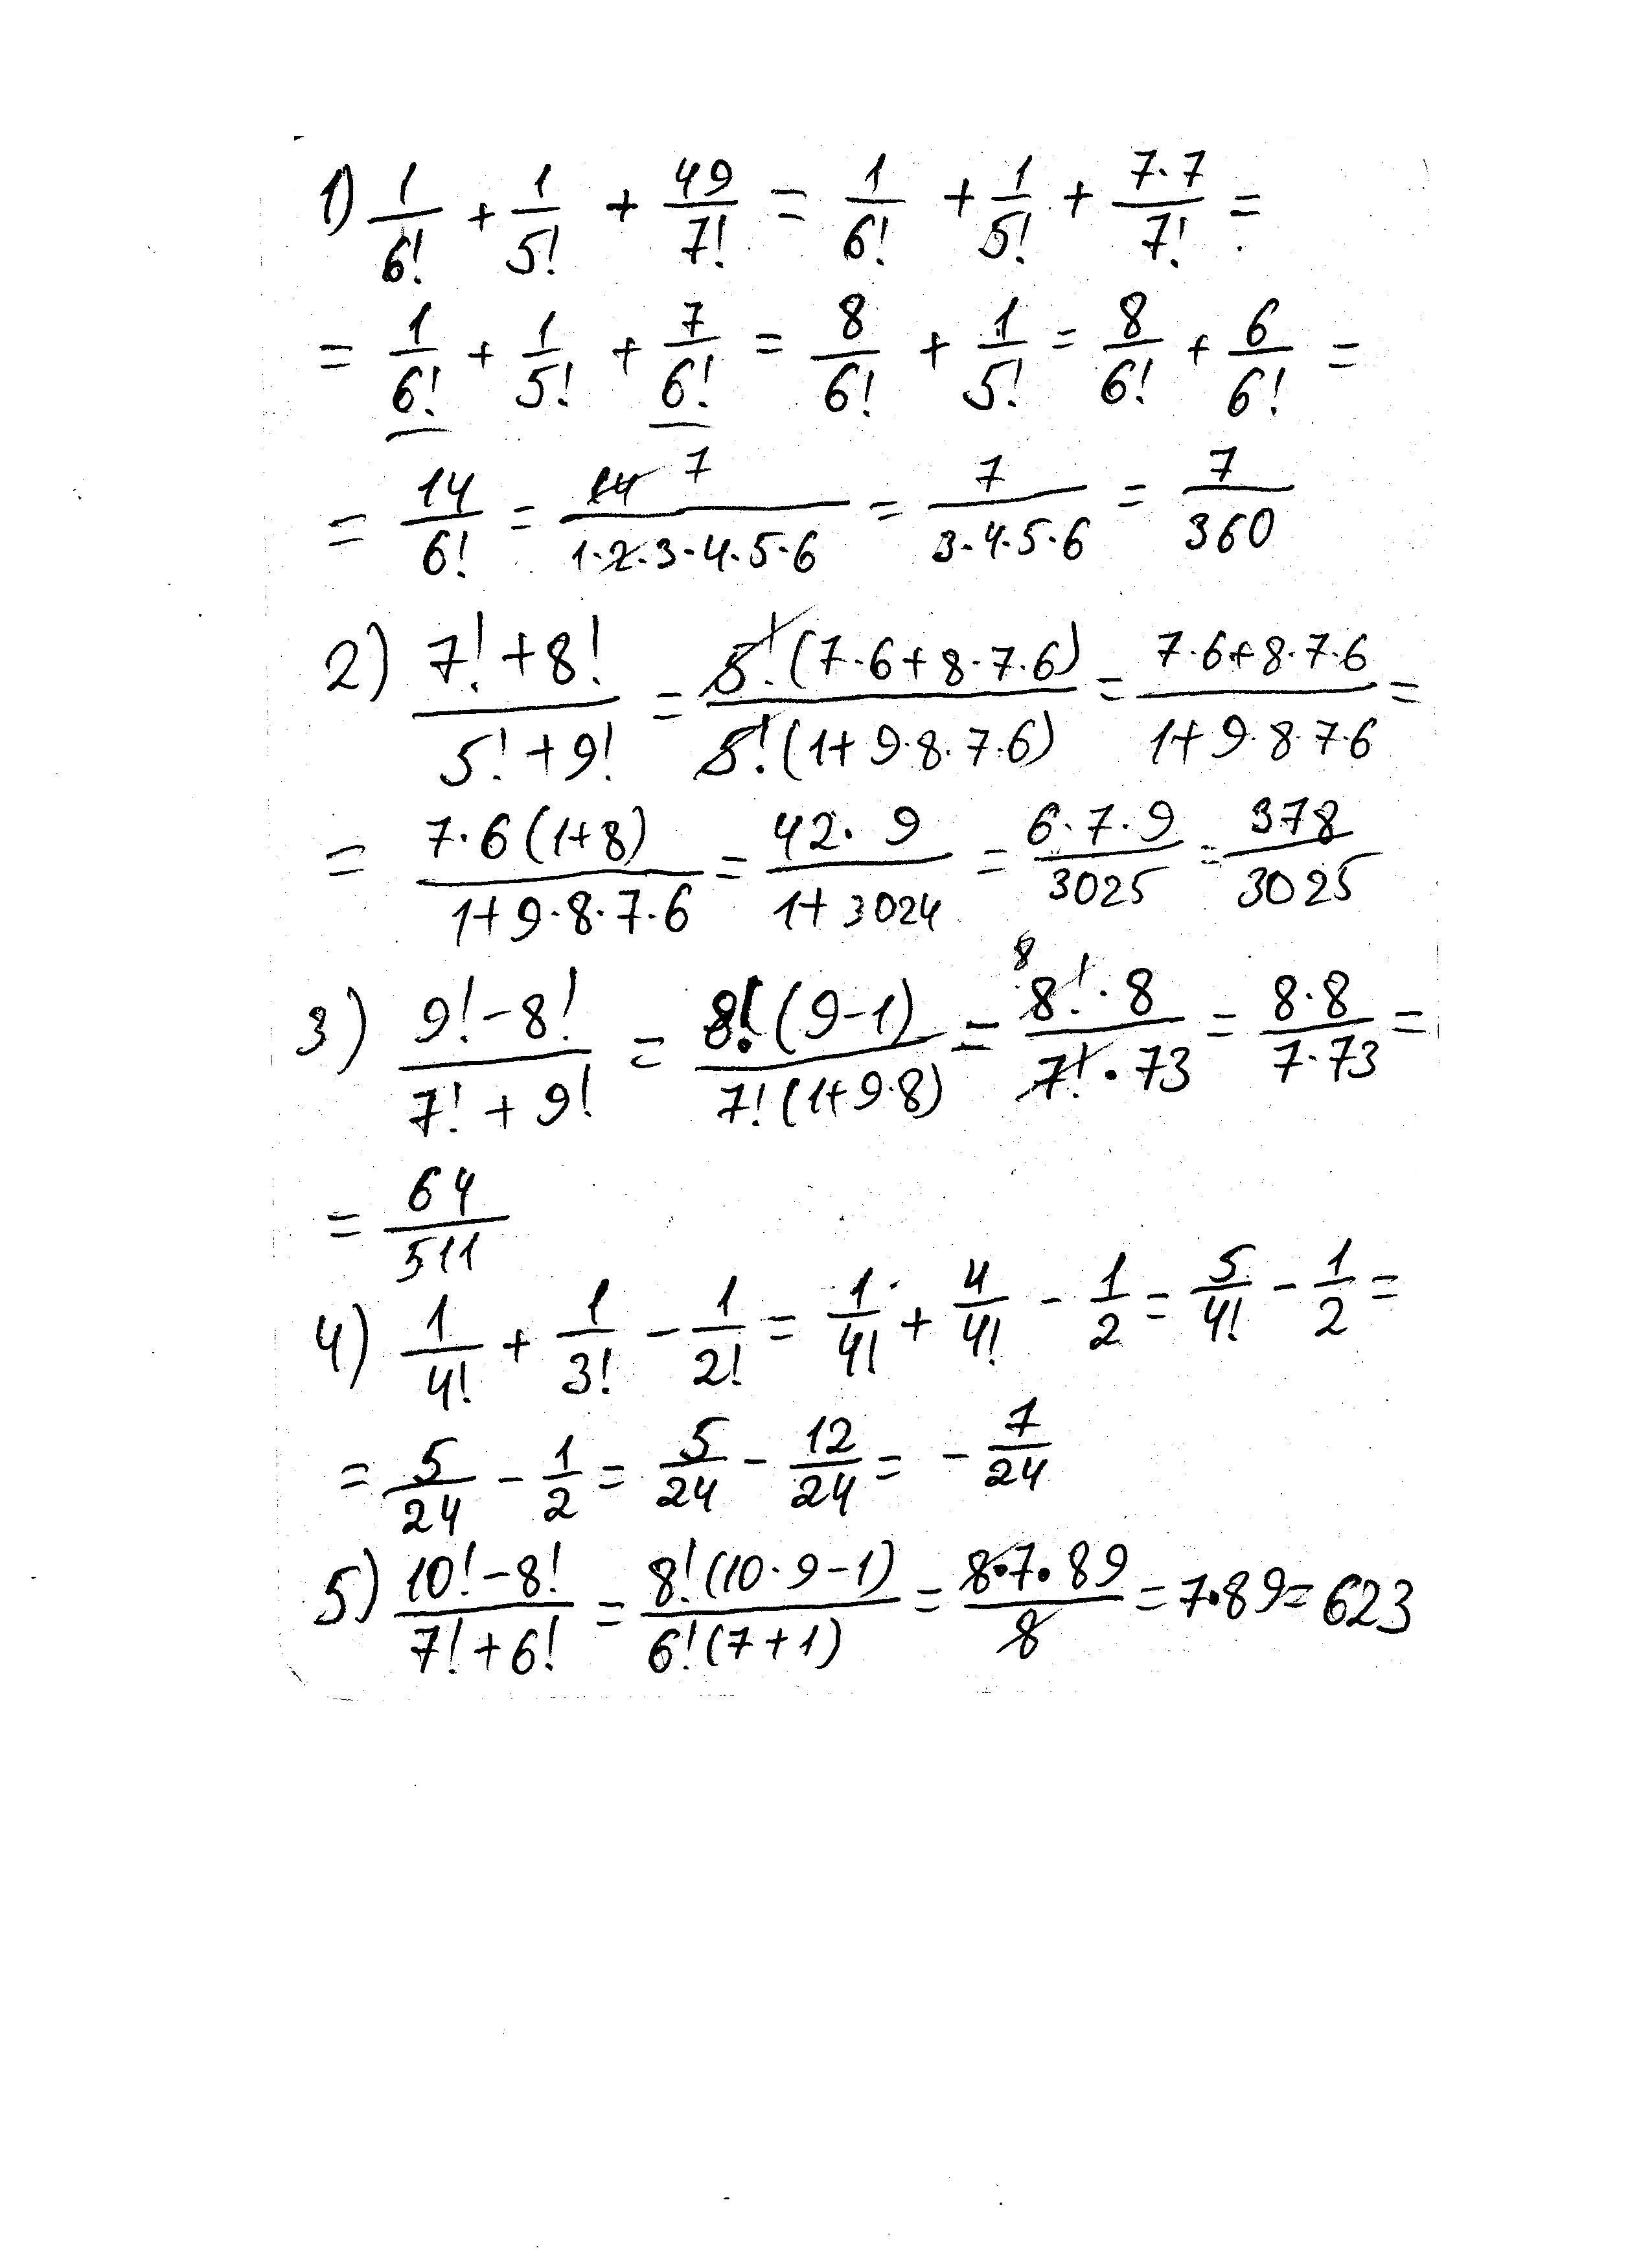 1) 1/6! + 1/5! + 49/7! = 1/6! + 1/5! + 7·7/7! =
= 1/6! + 1/5! + 7/6! = 8/6! + 1/5! = 8/6! + 6/6! =
= 14/6! = 14 7/1·2·3·4·5·6 = 7/3·4·5·6 = 7/360
2) 7! + 8!/5! + 9! = 5! (7·6 + 8·7·6)/5! (1 + 9·8·7·6) = 7·6 + 8·7·6/1 + 9·8·7·6 =
= 7·6 (1 + 8)/1 + 9·8·7·6 = 42·9/1 + 3024 = 6·7·9/3025 = 378/3025
3) 9! - 8!/7! + 9! = 8! (9 - 1)/7! (1 + 9·8) = 8 8!·8/7!·73 = 8·8/7·73 =
= 64/511
4) 1/4! + 1/3! - 1/2! = 1/4! + 4/4! - 1/2 = 5/4! - 1/2 =
= 5/24 - 1/2 = 5/24 - 12/24 = - 7/24
5) 10! - 8!/7! + 6! = 8! (10·9 - 1)/6! (7 + 1) = 8·7·89/8 = 7·89 = 623